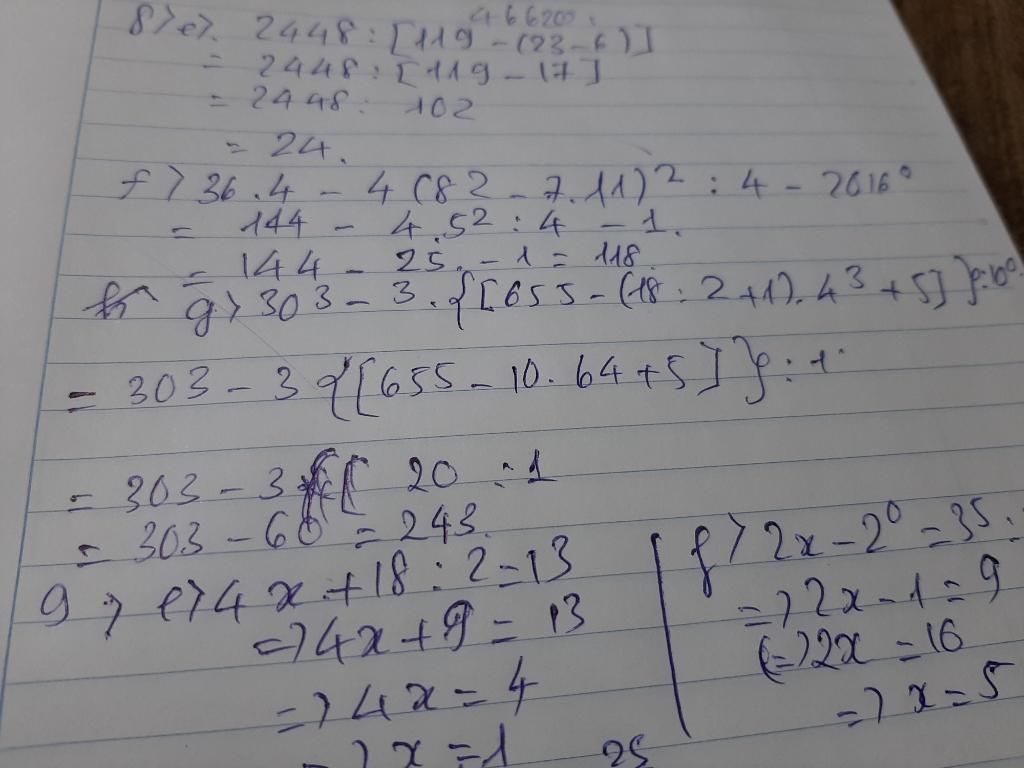 466200:
8>e>. 2448 : [119 - (23 - 6)]
= 2448 : [119 - 17]
= 2448 : 102
= 24.
f> 36.4 - 4(82 - 7.11)² : 4 - 2016⁰
= 144 - 4.5² : 4 - 1.
= 144 - 25. - 1 = 118
g> 303 - 3.{[655 - (18 : 2 + 1).4³ + 5]}:10⁰.
= 303 - 3{[655 - 10.64 + 5]} : 1
= 303 - 3 20 : 1
= 303 - 60 = 243.
9, e> 4x + 18 : 2 = 13
=> 4x + 9 = 13
=> 4x = 4
=> x = 1
f> 2x - 2⁰ = 3⁵ :
=> 2x - 1 = 9
(=> 2x = 10
=> x = 5
25